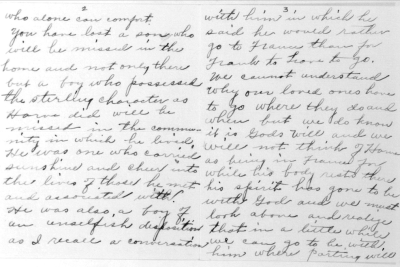 2
who alone can comfort.
You have lost a son who
will be missed in the
home and not only there
but a boy who possessed
the sterling character as
Hans did will be
missed in the commu-
nity in which he lived,
He was one who carried
sunshine and cheer into
the lives of those he met
and associated with.
He was also, a boy of
an unselfish disposition
as I recall a conversation
3
with him in which he
said he would rather
go to France than for
Frank to have to go.
We cannot understand
why our loved ones have
to go where they do and
when but we do know
it is Gods will and we
will not think of Hans
as being in France for
while his body rests there
his spirit has gone to be
with God and we must
look above and realize
that in a little while
we can go to be with
him where parting will